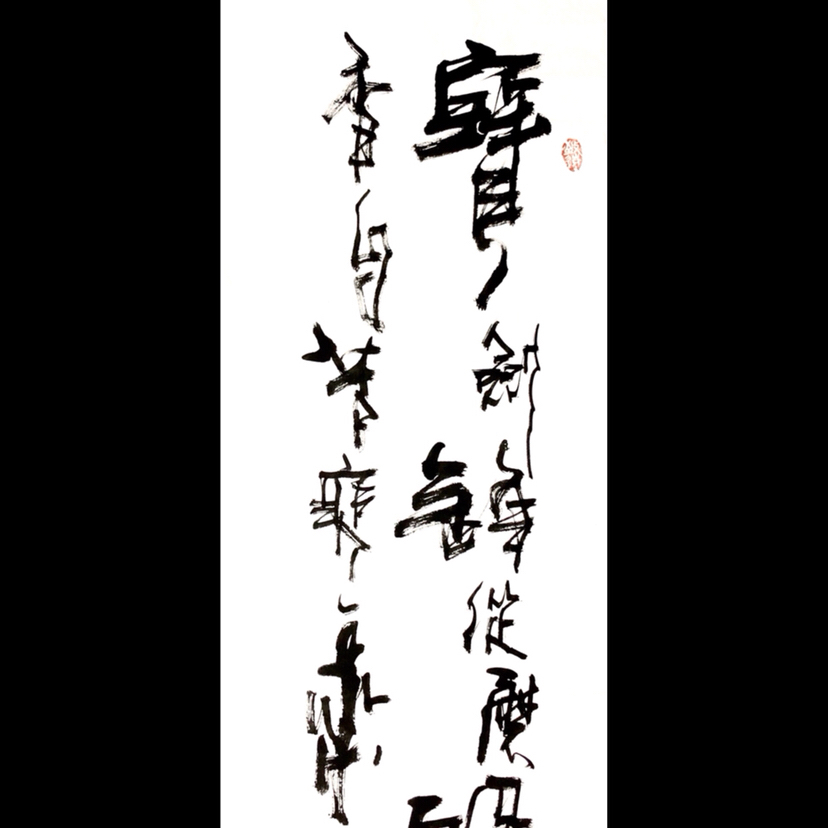 寶劍鋒從磨
香自苦寒來